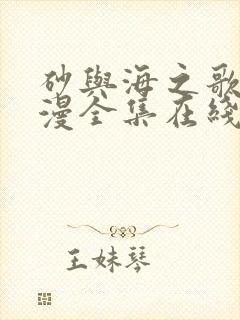 砂與海之歌
漫全集在綫
王妹琴